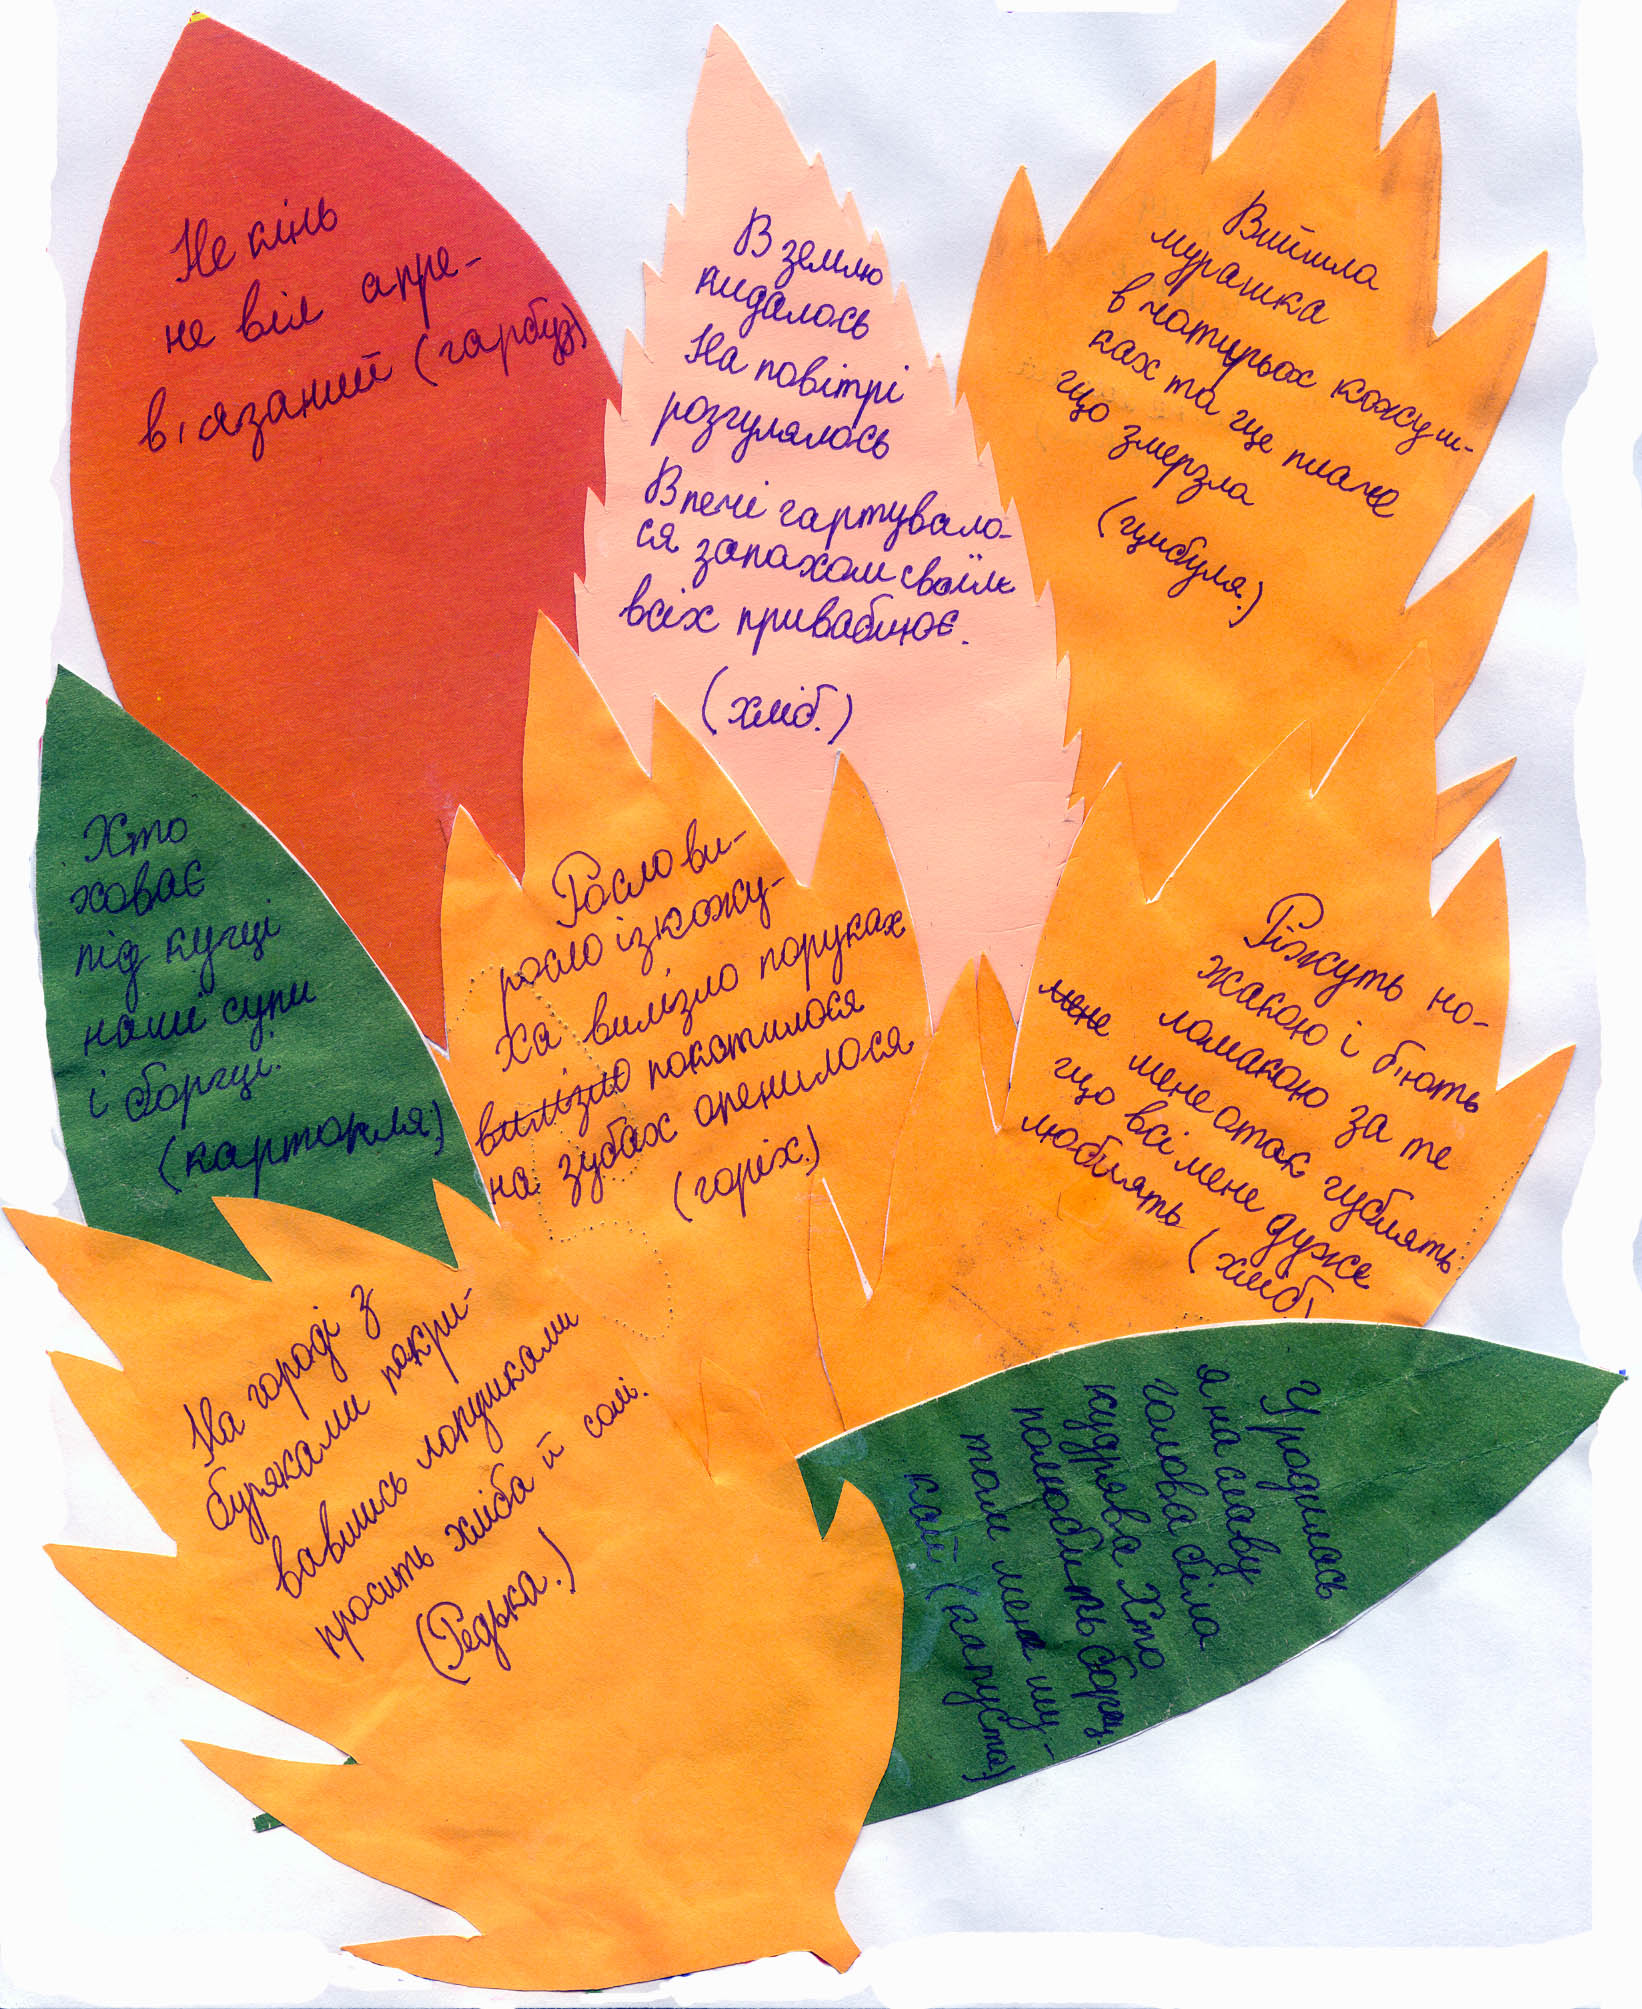 Не кінь
не віл а при-
в'язаний (гарбуз)
В землю
кидалось
На повітрі
розгулялось
В печі гартувало-
ся запахом своїм
всіх приваблює.
(хліб.)
Вийшла
мурашка
в чотирьох кожуш-
ках та ще плаче
що змерзла
(цибуля.)
Хто
ховає
під кущі
наші супи
і борщі.
(картопля)
Росло ви-
росло із кожу-
ха вилізло по руках
вилізло покотилося
на зубах опенилося
(горіх.)
Ріжуть но-
жакою і б'ють
ломакою за те
мене мене оток гублять
що всі мене дуже
люблять (хліб)
На городі з
буряками покри-
вавшись лопушками
просить хліба й солі.
(Редька.)
Уродилась
я на славу
голова біла
кудрява Хто
полюбить борщ
там мене шу-
кай (капуста)